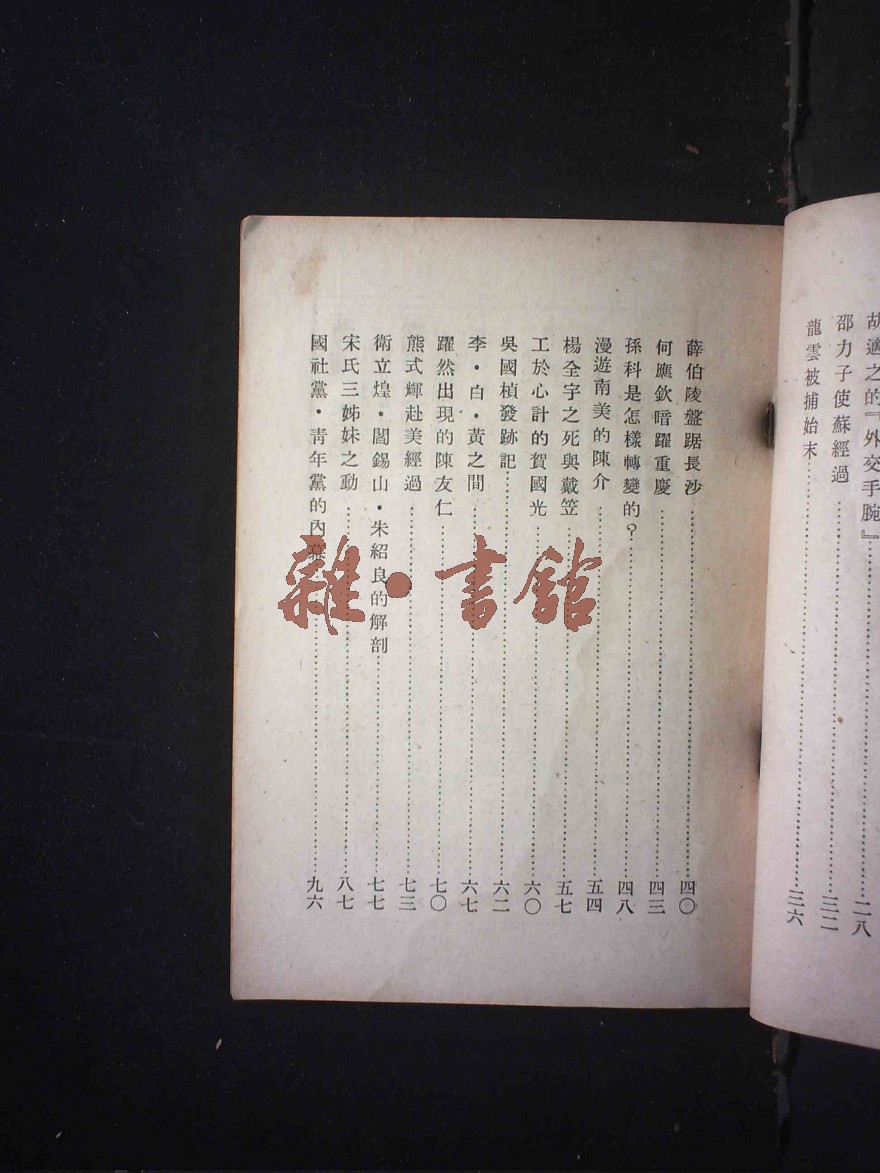 胡適之的『外交手腕』……二八
邵力子使蘇經過……三二
龍雲被捕始末……三六
薛伯陵盤踞長沙……四〇
何應欽暗躍重慶……四三
孫科是怎樣轉變的？……四八
漫遊南美的陳介……五四
楊全宇之死與戴笠……五七
工於心計的賀國光……六〇
吳國楨發跡記……六二
李·白·黃之間……六七
躍然出現的陳友仁……七〇
熊式輝赴美經過……七三
衛立煌·閻錫山·朱紹良的解剖……七七
宋氏三姊妹之動……八七
國社黨·青年黨的內幕……九六
雜·書館